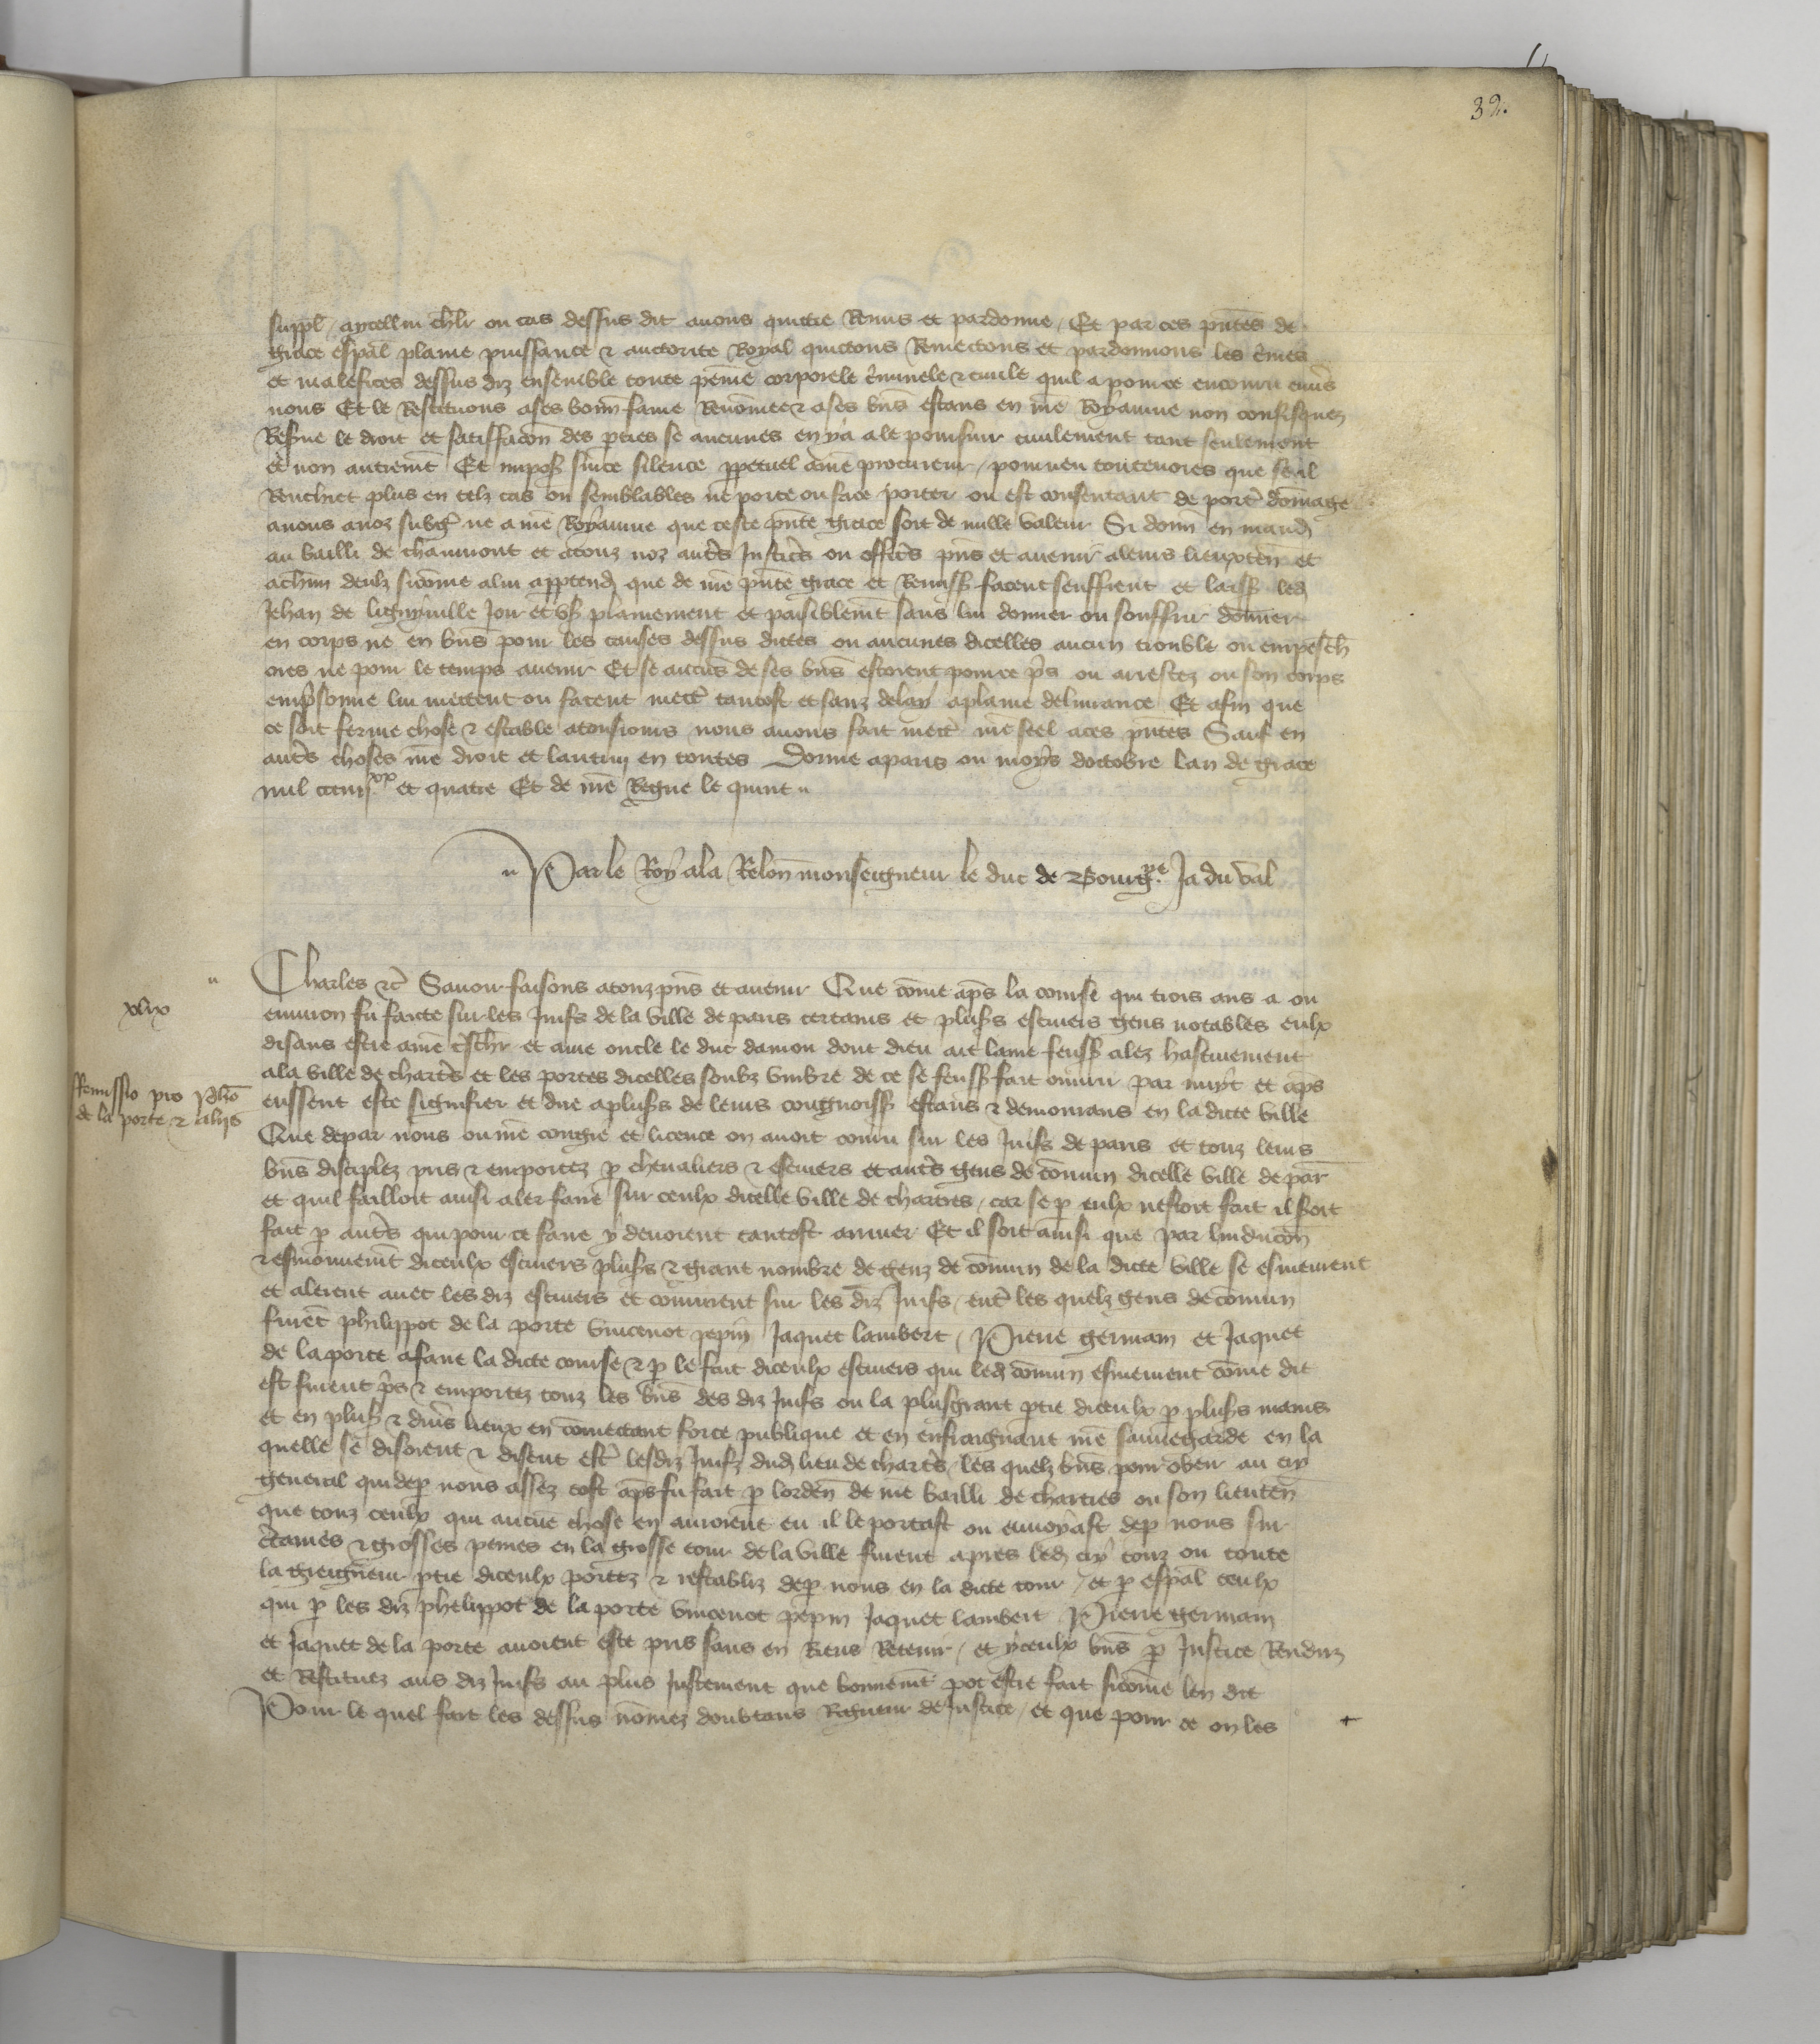 32.
suppl aycellui chlr ou cas dessus dit auons quitte Remis et pardonne / Et par ces pntes de
grace espal plaine puissance & auctorite Royal quictons Remectons et pardonnons les cmes
et malefices dessus diz ensemble toute peine corporele cminele & ciuile quil a pour ce encouru enus
nous Et le Restituons a ses bonn fame Renomee & a ses bns estans en nre Royaume non confisquez
Reserue le droit et satisfaccon des pties se aucunes en y a a le poursuir ciuilement tant seulement
et non autremt Et impos sur ce silence ppetuel a nre procureur / pourueu touteuoies que se il
Renchiet plus en telz cas ou semblables ne porte ou face porter ou est consentant de porter domage
a nous a noz subgs ne a nre Royaume que ceste pnte grace soit de nulle valeur Si donn en mand
au bailli de chaumont et a touz noz auts Justics ou offics pns et auenir a leurs lieuxten et
a chun deulz sicome a lui apptend que de nre pnte grace et Remiss facent seuffrent et laiss led
Jehan de ligniuille Joir et vs plainement et paisiblemt sans lui donner ou souffrir donner
en corps ne en bns pour les causes dessus dictes ou aucunes dicelles aucun trouble ou empesch
ores ne pour le temps auenir Et se aucus de ses bns estoient pour ce pns ou arrestez ou son corps
emprisonne lui mettent ou facent mett tantost et sanz delay a plaine deliurance Et afin que
ce soit ferme chose & estable a tousiours nous auons fait mett nre seel a ces pntes Sauf en
auts choses nre droit et lautruy en toutes Donne a paris ou moys doctobre lan de grace
mil ccciiijxx et quatre Et de nre Regne le quint
Par le Roy a la Relon monseigneur le duc de Bourgne Ja du val
xlix
Remissio pro pho
de la porte & aliis
Charles &c Sauoir faisons a touz pns et auenir Que come aps la course qui trois ans a ou
enuiron fu faicte sur les Juifs de la ville de paris certains et plus escuiers gens notables eulx
disans estre a nre tschr et ame oncle le duc daniou dont dieu ait lame feuss alez hastiuement
a la ville de charts et les portes dicelles soubz vmbre de ce se feuss fait ouurir par nuyt et aps
eussent este signifier et dire a plus de leurs congnoiss estans & demourans en la dicte ville
Que de par nous ou nre congie et licence on auoit couru sur les Juifs de paris et touz leurs
bns disciplez pris & emportez p cheualiers & escuiers et auts gens de comun dicelle ville de par
et quil failloit ainsi aler faire sur ceulx dicelle ville de chartres / car se p eulx nestoit fait il seroit
fait p auts qui pour ce faire y deuoient tantost arriuer Et il soit ainsi que par linduccon
& esmouuemt diceulx escuiers plus & grant nombre de genz de comun de la dicte ville se esmeurent
et alerent auec les diz escuiers et coururent sur les diz Juifs / ent les quelz gens de comun
furet philippot de la porte vincenot pepin Jaquet lambert / Pierre germain et Jaquet
de la porte a faire la dicte course & p le fait diceulx escuiers qui led comun esmeurent come dit
est furent pns & emportez touz les bns des diz Juifs ou la plusgrant ptie diceulx p plus mains
et en plus & diuers lieux en comectant force publique et en enfraignant nre sauuegarde en la
quelle se disoient & disent est lesdiz Juifz dud lieu de charts / les quelz bns pour obeir au cry
general qui de p nous assez tost aps fu fait p lorden de nre bailli de chartres ou son lieuten
que touz ceulx qui aucune chose en auroient eu il le portast ou enuoyast de p nous sur
ctaines & grosses peines en la grosse tour de la ville furent apres led cry touz ou toute
la greigneur ptie diceulx portez & restabliz de p nous en la dicte tour / et p espal ceulx
qui p les diz phelippot de la porte vincenot pepin Jaquet lambert Pierre germain
et Jaquet de la porte auoient este pris sans en Riens Retenir / et yceulx bns p Justice Renduz
et Restituez aus diz Juifs au plus Justement que bonnemt pot estre fait sicome len dit
Pour le quel fait les dessus nomez doubtans Rigueur de Justice / et que pour ce on les +